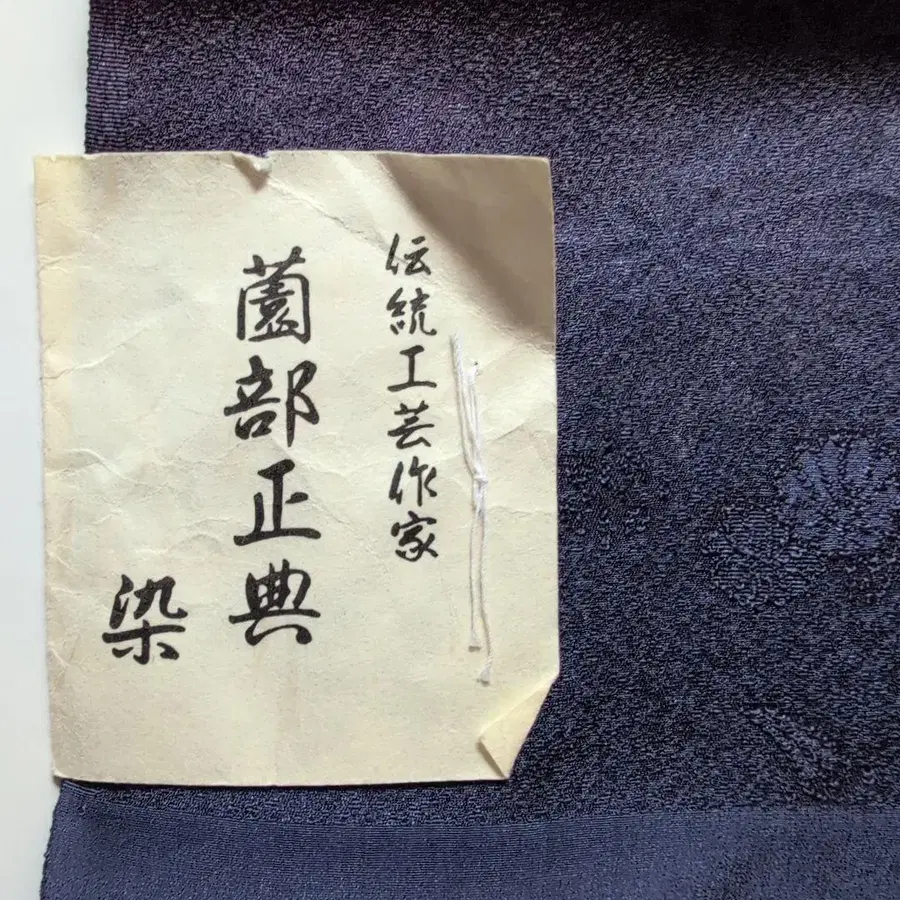 伝統工芸作家
薗部正典
染